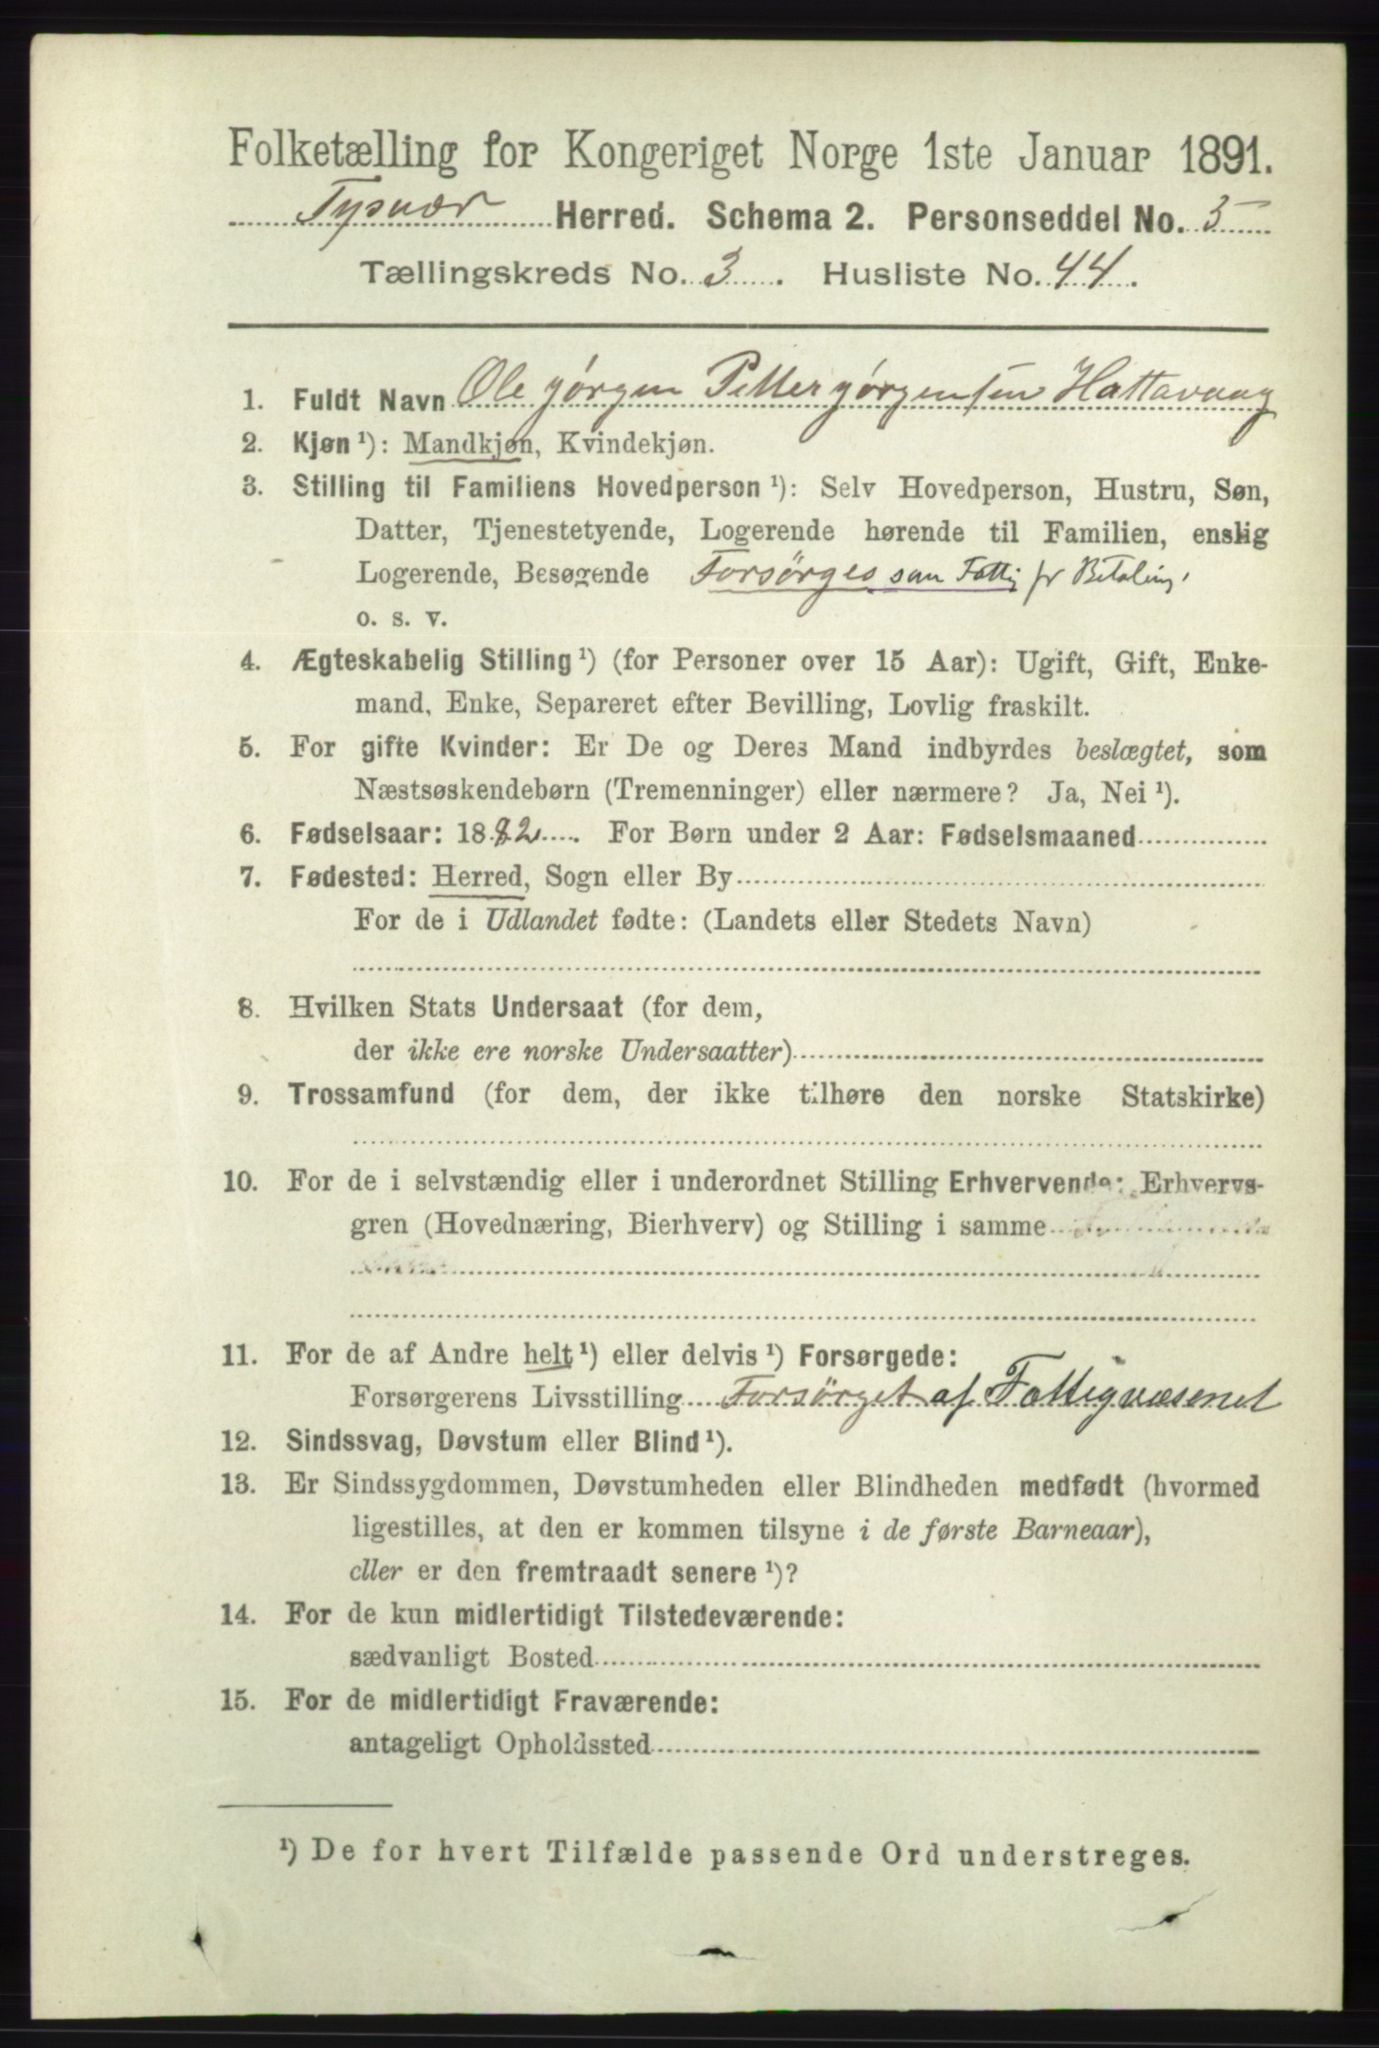 Folketælling for Kongeriget Norge 1ste Januar 1891.
Tysvær Herred. Schema 2. Personseddel No. 5
Tællingskreds No. 3. Husliste No. 44.
1. Fuldt Navn Ole Jørgen Petter Jørgensen Hattavaag
2. Kjøn ¹): Mandkjøn, Kvindekjøn.
3. Stilling til Familiens Hovedperson ¹): Selv Hovedperson, Hustru, Søn,
Datter, Tjenestetyende, Logerende hørende til Familien, enslig
Logerende, Besøgende Forsørges som Fattig pr Betaling
o. s. v.
4. Ægteskabelig Stilling ¹) (for Personer over 15 Aar): Ugift, Gift, Enke-
mand, Enke, Separeret efter Bevilling, Lovlig fraskilt.
5. For gifte Kvinder: Er De og Deres Mand indbyrdes beslægtet, som
Næstsøskendebørn (Tremenninger) eller nærmere? Ja, Nei ¹).
6. Fødselsaar: 1882. For Børn under 2 Aar: Fødselsmaaned
7. Fødested: Herred, Sogn eller By
For de i Udlandet fødte: (Landets eller Stedets Navn)
8. Hvilken Stats Undersaat (for dem,
der ikke ere norske Undersaatter)
9. Trossamfund (for dem, der ikke tilhøre den norske Statskirke)
10. For de i selvstændig eller i underordnet Stilling Erhvervende: Erhvervs-
gren (Hovednæring, Bierhverv) og Stilling i samme
11. For de af Andre helt ¹) eller delvis ¹) Forsørgede:
Forsørgerens Livsstilling Forsörget af Fattigvæsenet
12. Sindssvag, Døvstum eller Blind ¹).
13. Er Sindssygdommen, Døvstumheden eller Blindheden medfødt (hvormed
ligestilles, at den er kommen tilsyne i de første Barneaar),
eller er den fremtraadt senere ¹)?
14. For de kun midlertidigt Tilstedeværende:
sædvanligt Bosted
15. For de midlertidigt Fraværende:
antageligt Opholdssted
¹) De for hvert Tilfælde passende Ord understreges.